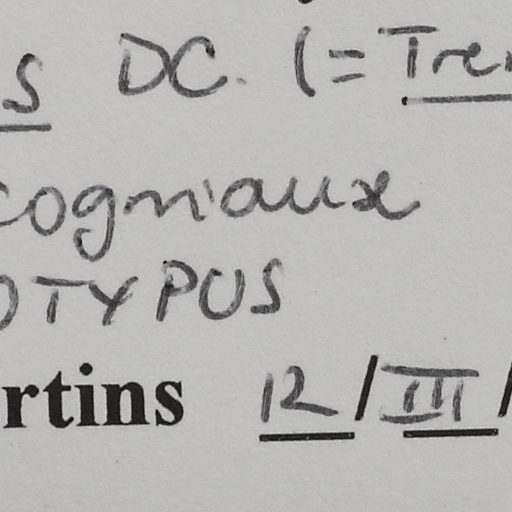 s DC. (= Trem
cogniaux
OTYPUS
rtins 12/III/